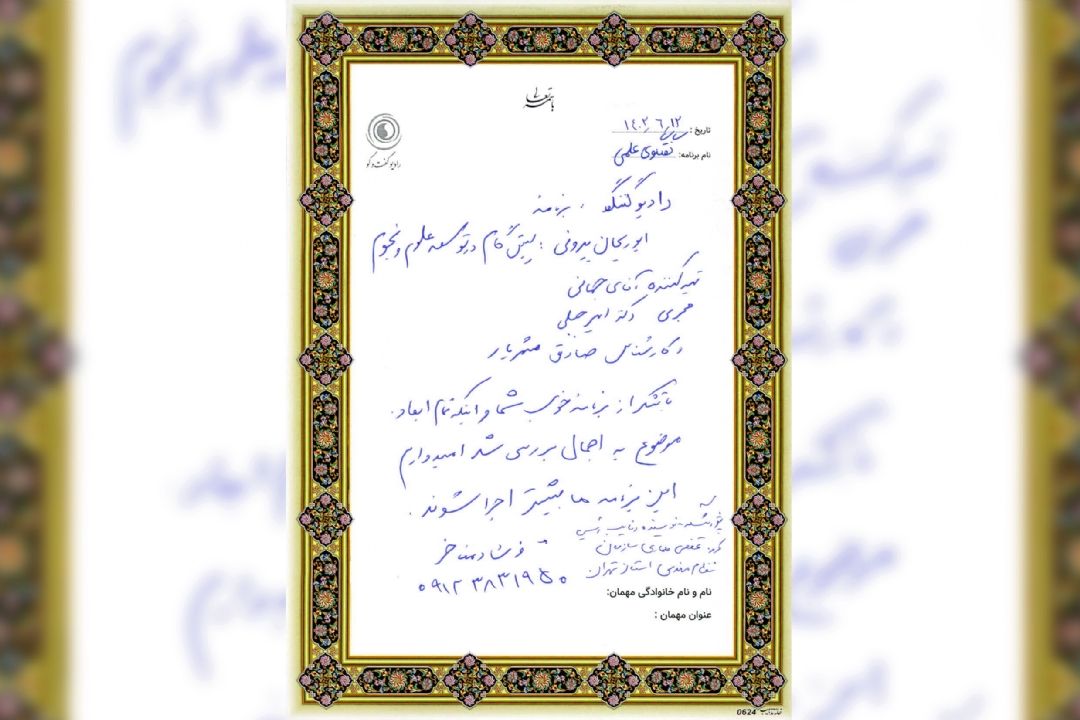 باسمه تعالی
رادیو گفت و گو
تاریخ: ۱۴۰۲/۶/۱۲
نام برنامه: گفتگوی علمی
رادیو گفتگو ، برنامه
ابوریحان بیرونی ؛ پیش گام در توسعه علوم و نجوم
تهیه کننده آقای جمانی
مجری دکتر امیر جبلی
و کارشناس صادق شهریار
با تشکر از برنامه خوب شما و اینکه تمام ابعاد
موضوع به اجمال بررسی شد امیدوارم
این برنامه ها بیشتر اجرا شوند .
نویسنده و نایب رئیس
گروه تخصصی سازمان
نظام مهندسی استان تهران
۰۹۱۲۳۸۳۱۹۵۰
نام و نام خانوادگی مهمان:
عنوان مهمان :
0624